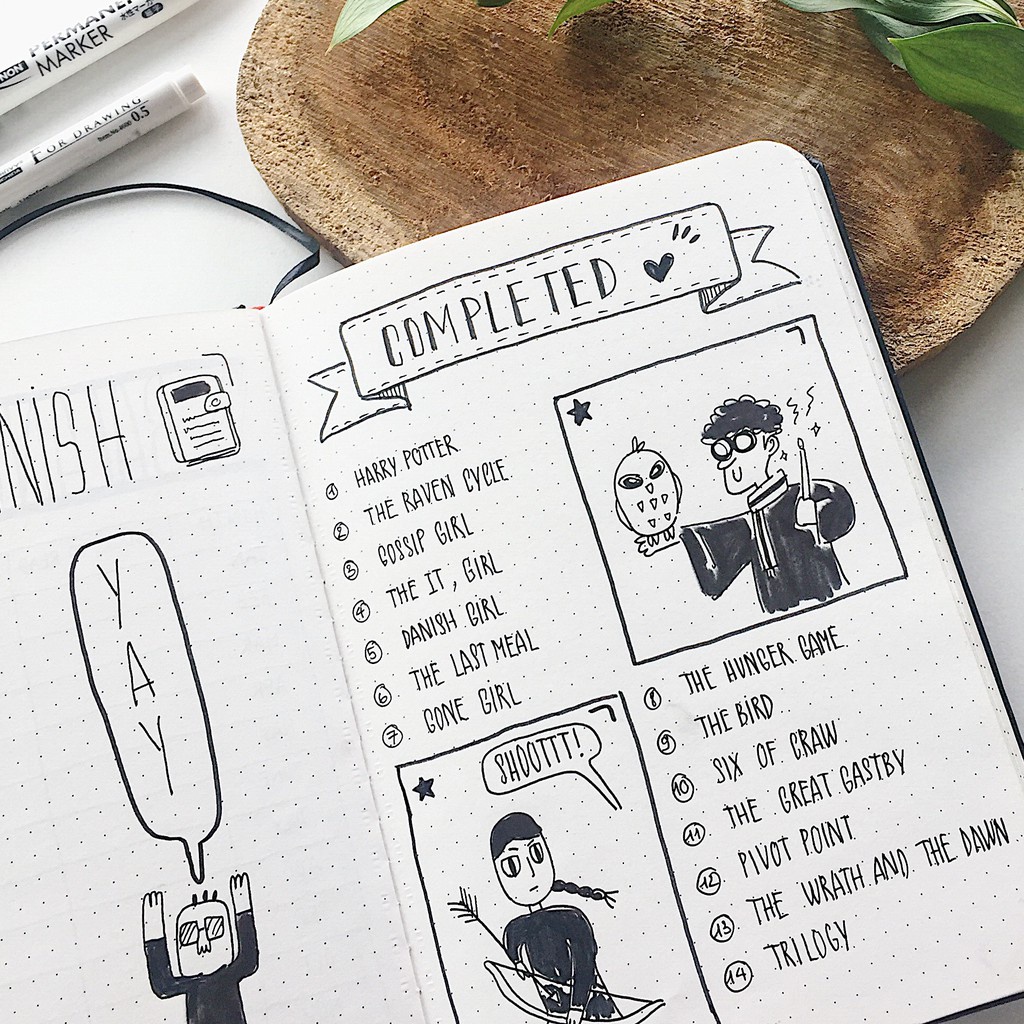 PERMANENT
MARKER
FOR DRAWING
0.5
NISH
YAY
COMPLETED
① HARRY POTTER
② THE RAVEN CYCLE
③ GOSSIP GIRL
④ THE IT, GIRL
⑤ DANISH GIRL
⑥ THE LAST MEAL
⑦ GONE GIRL
SHOOTTT!
⑧ THE HUNGER GAME
⑨ THE BIRD
⑩ SIX OF CRAW
⑪ THE GREAT GASTBY
⑫ PIVOT POINT
⑬ THE WRATH AND THE DAWN
⑭ TRILOGY